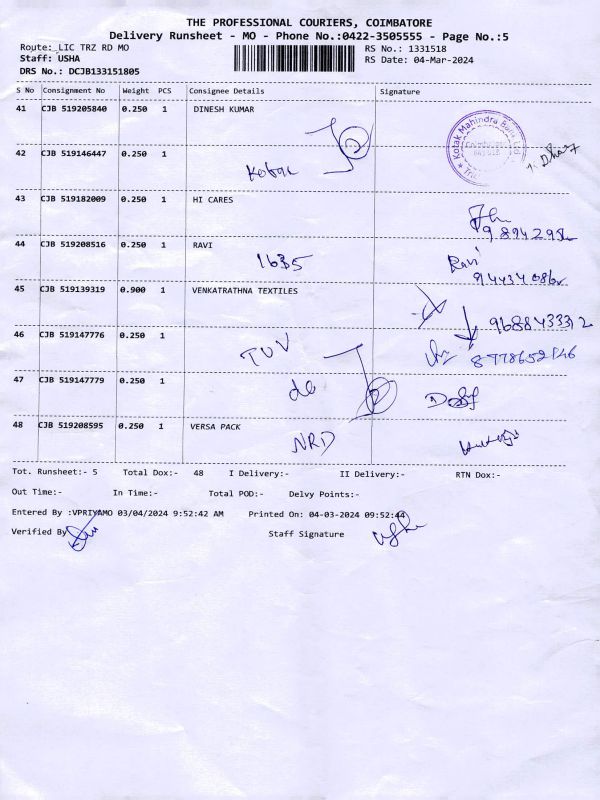 THE PROFESSIONAL COURIERS, COIMBATORE
Delivery Runsheet - MO - Phone No.:0422-3505555 - Page No.:5
Route:_LIC TRZ RD MO RS No.: 1331518
Staff: USHA RS Date: 04-Mar-2024
DRS No.: DCJB133151805
S No Consignment No Weight PCS Consignee Details Signature
41 CJB 519205840 0.250 1 DINESH KUMAR
Kotak Mahindra Bank Ltd
42 CJB 519146447 0.250 1
Kotak
43 CJB 519182009 0.250 1 HI CARES
44 CJB 519208516 0.250 1 RAVI
1635 Ravi
45 CJB 519139319 0.900 1 VENKATRATHNA TEXTILES
9688433312
46 CJB 519147776 0.250 1
TUV
47 CJB 519147779 0.250 1
do
48 CJB 519208595 0.250 1 VERSA PACK
NRD
Tot. Runsheet:- 5 Total Dox:- 48 I Delivery:- II Delivery:- RTN Dox:-
Out Time:- In Time:- Total POD:- Delvy Points:-
Entered By :VPRIYAMO 03/04/2024 9:52:42 AM Printed On: 04-03-2024 09:52:44
Verified By Staff Signature